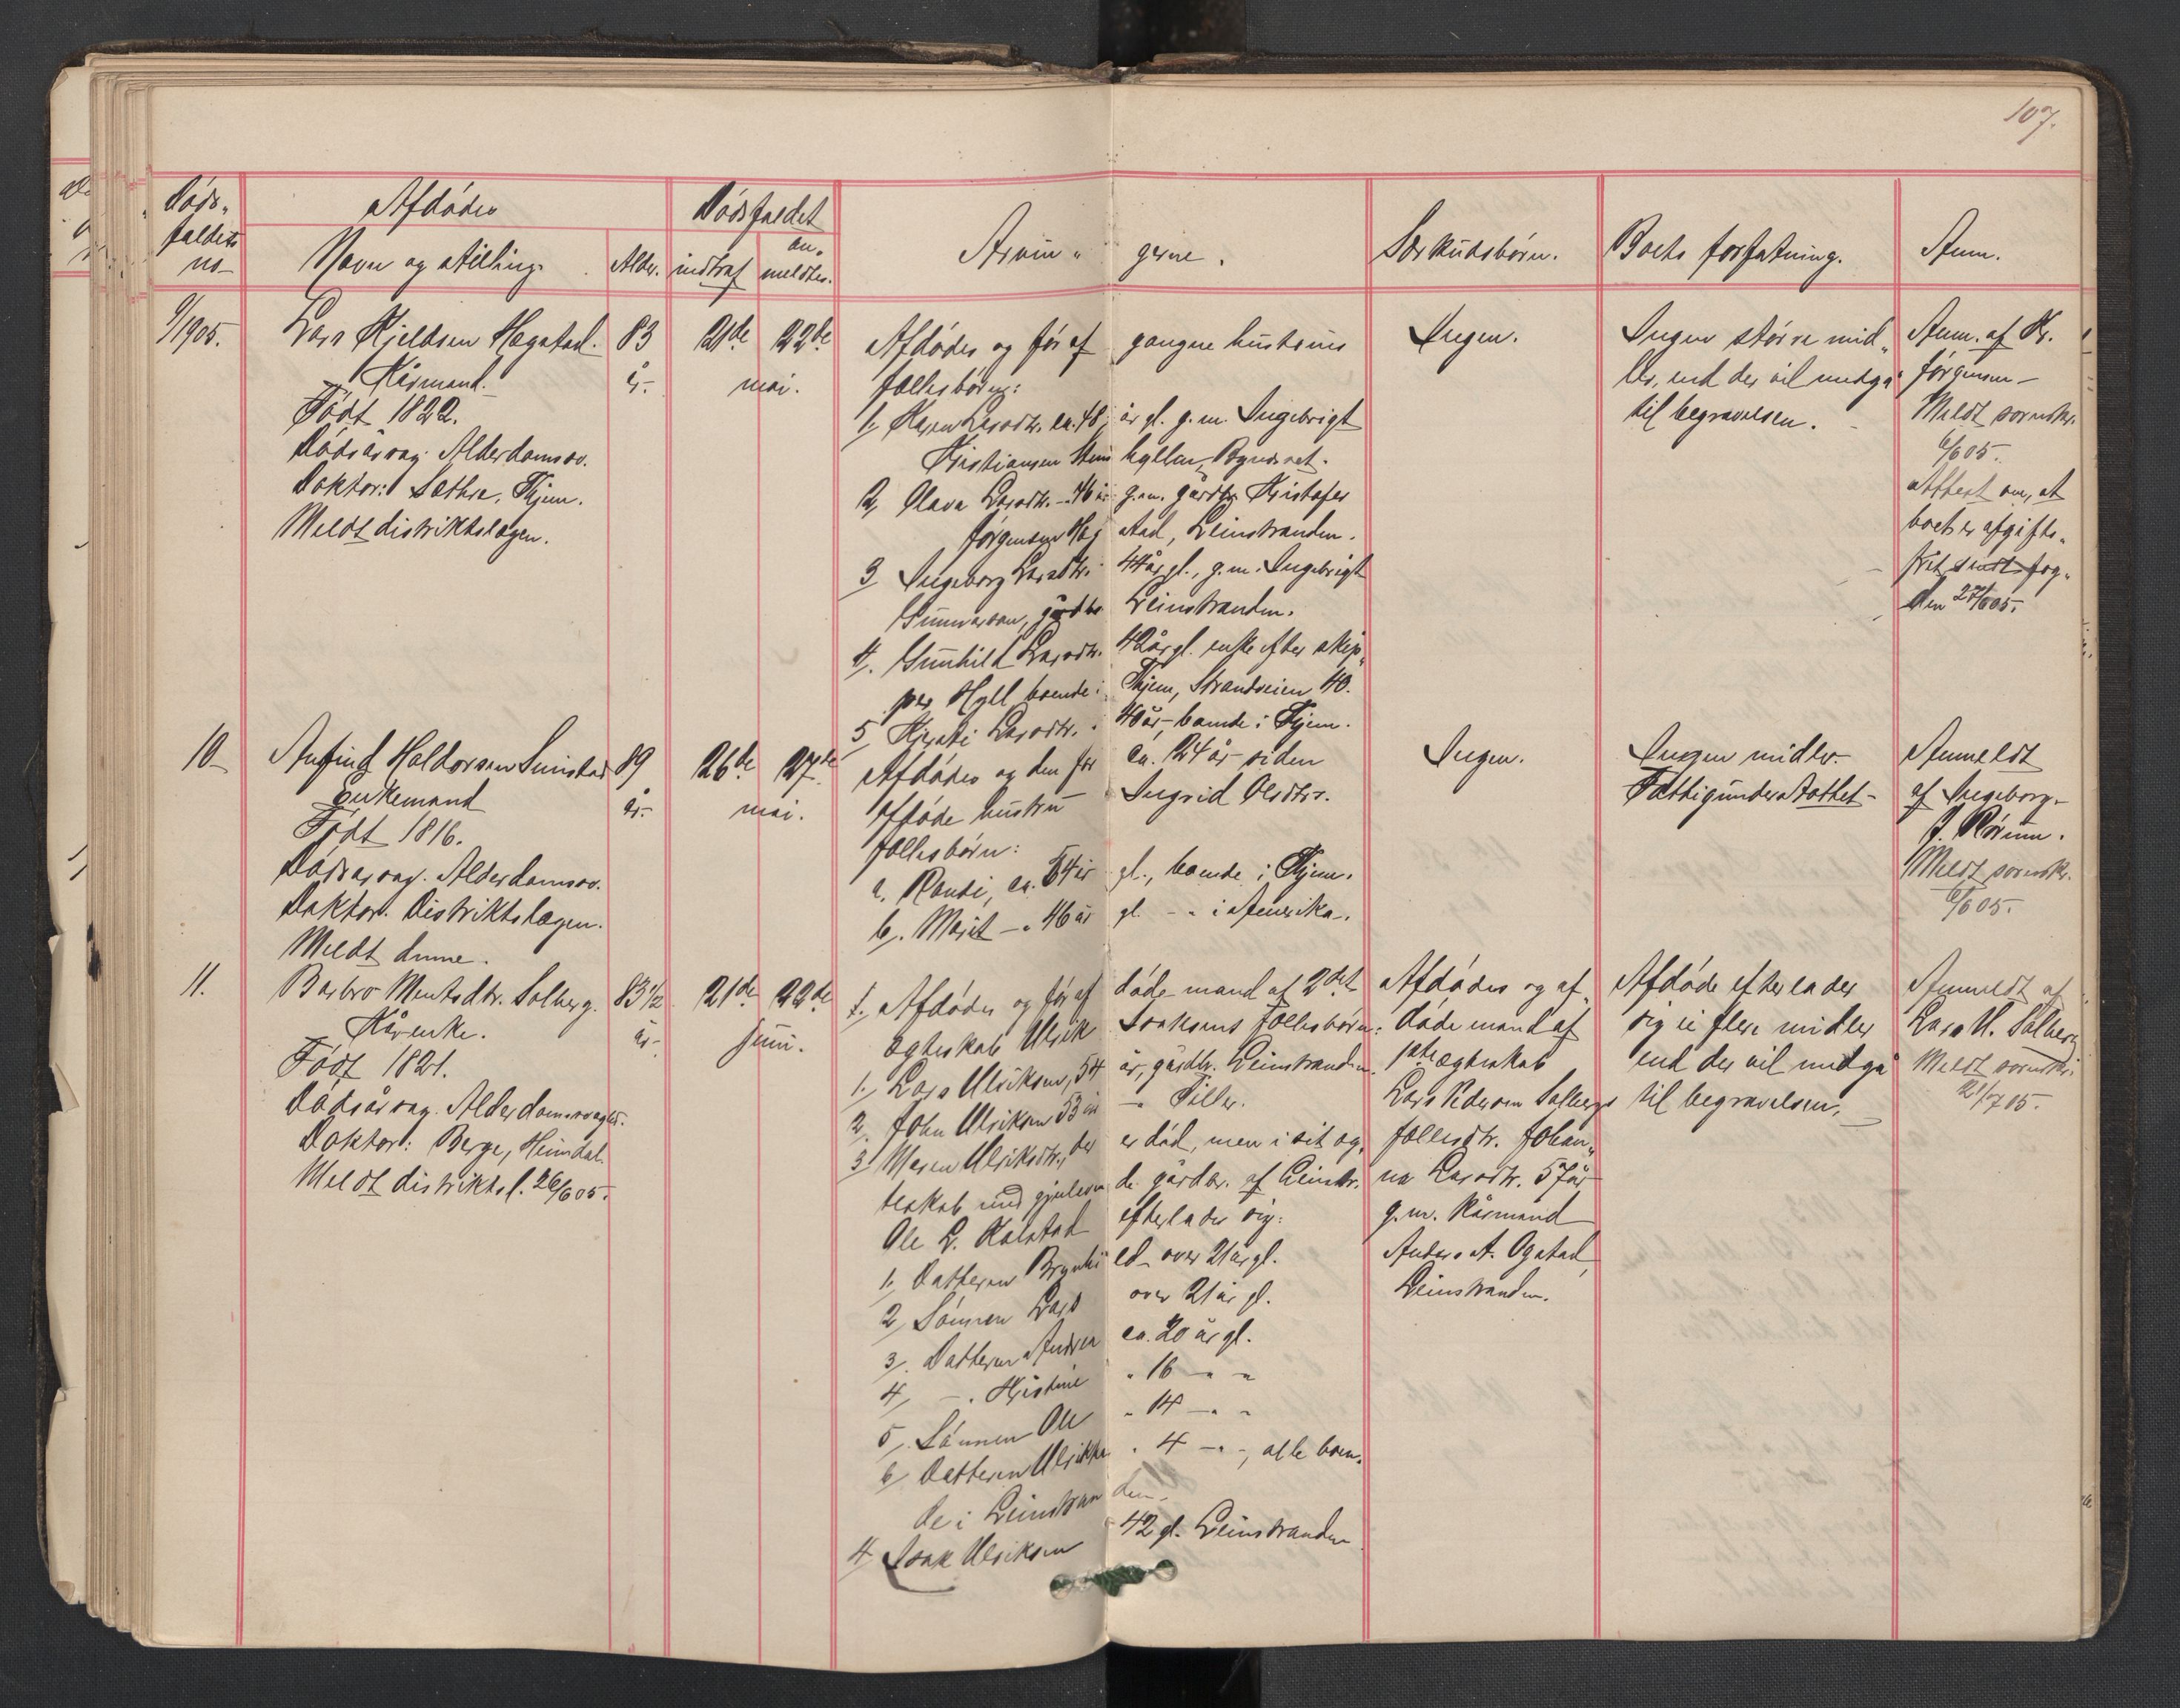 107.
Døds-
faldets
no
Afdødes
Navn og stilling.
Alder.
Dødsfaldet
indtraf
an-
meldtes.
Arvin- gerne.
Særkudsbørn.
Boets forfatning.
Anm.
9/1905.
Lars Kjeldsen Hegstad.
Kårmand.
Født 1822.
Dødsårsag: Alderdomssv.
Doktor: Sæthre, Thjem.
Meldt distriktslægen.
83
år.
21de
22de
mai.
Afdødes og før af gangne hustrus
fællesbørn:
1, Karen Larsdtr. ca. 48 år gl. g. m. Ingebrigt
Kristiansen Sten hyllen, Bynesset.
2, Olava Larsdtr. - 46 år g. m. gårdbr. Kristofer
Jørgensen Heg stad, Leinstranden.
3 Ingeborg Larsdtr. 44 år gl., g. m. Ingebrigt
Gunnarson, gårdbr. Leinstranden.
4, Gunhild Larsdtr. 42 år gl. enke efter skip-
per Hyll boende i Thjem, Strandveien 40.
5 Kjersti Larsdtr. 40 år, boende i Thjem.
Ingen.
Ingen større mid-
ler, end der vil medgå
til begravelsen.
Anm. af Kr.
Jørgensen
Meldt sorenskr.
6/6 05.
Attest om, at
boet er afgifts-
frit sendt fog-
den 27/6 05.
10
Anfind Haldorsen Sunstad
Enkemand
Født 1816.
Dødsårsag. Alderdomssv.
Doktor. Distriktslægen.
Meldt denne.
89
år.
26de
27de
mai.
Afdødes og den for ca. 24 år siden
afdøde hustru Ingrid Olsdtrs.
fællesbørn:
a, Randi, ca. 54 år gl., boende i Thjem.
b, Marit - " 46 år gl. - " i Amerika.
Ingen.
Ingen midler.
Fattigunderstøttet
Anmeldt
af Ingeborg
J. Rønne.
Meldt sorenskr.
6/6 05.
11.
Barbro Mentsdtr. Solberg.
Kårenke.
Født 1821.
Dødsårsag. Alderdomssvaghed.
Doktor: Berge, Heimdal.
Meldt distriktsl. 26/6 05.
83 1/2
år.
21de
22de
juni.
1, Afdødes og før af døde mand af 2det
ægteskab Ulrik Isaksens fællesbørn:
1, Lars Ulriksen, 54 år, gårdbr. Leinstranden.
2, John Ulriksen 53 år - Tiller.
3, Maren Ulriksdtr., der er død, men i sit æg-
teskab med gjenleven de gårdbr. af Leinstr.
Ole L. Kålstad efterlader sig:
1, Datteren Brynhi ld over 21 år gl.
2, Sønnen Lars over 21 år gl.
3, Datteren Andrea ca. 20 år gl.
4, - " Kristine " 16 - " "
5, Sønnen Ole " 14 - " "
6, Datteren Ulrikka " 4 - " ", alle boen-
de i Leinstran den.
4, Isak Ulriksen 42 gl. Leinstranden
Afdødes og af-
døde mand af
1ste ægteskab
Lars Pedersen Solbergs
fællesdtr. Johan-
na Larsdtr. 57 år
g. m. kårmand
Anders A. Ogstad,
Leinstranden.
Afdøde efterlader
sig ei flere midler
end der vil medgå
til begravelsen.
Anmeldt af
Lars U. Solberg
Meldt sorenskr.
21/7 05.